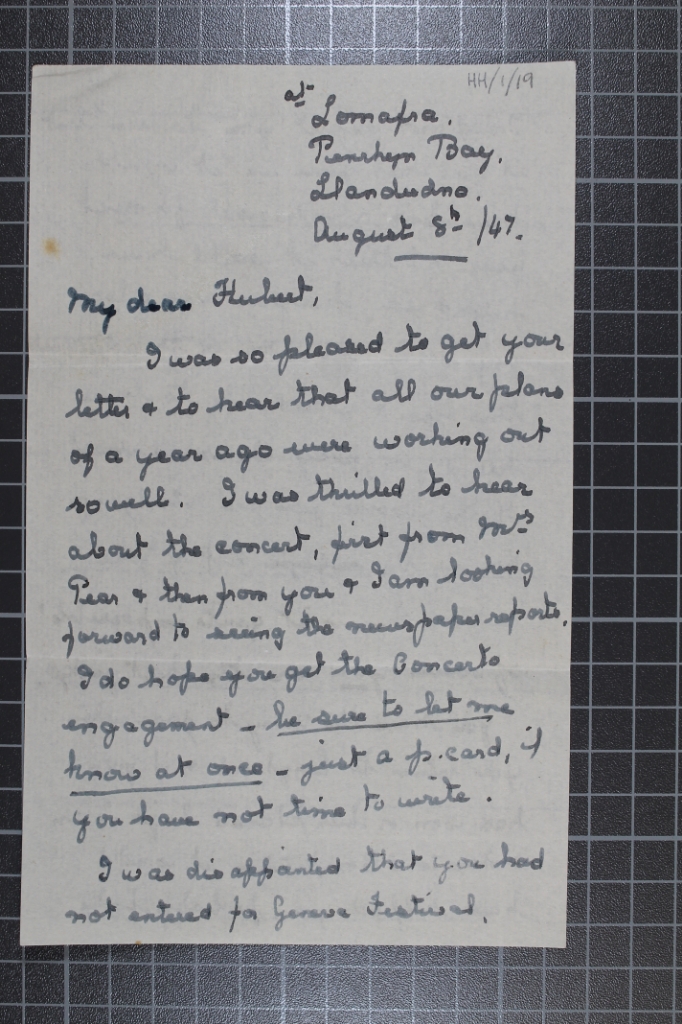 HH/1/19
at Lomafra.
Penrhyn Bay,
Llandudno.
August 8th /47.
My dear Hubert,
I was so pleased to get your
letter & to hear that all our plans
of a year ago were working out
so well. I was thrilled to hear
about the concert, first from Mrs
Pear & then from you & I am looking
forward to seeing the newspaper reports.
I do hope you get the Concerto
engagement - be sure to let me
know at once - just a p.card, if
you have not time to write.
I was disappointed that you had
not entered for Geneva Festival.